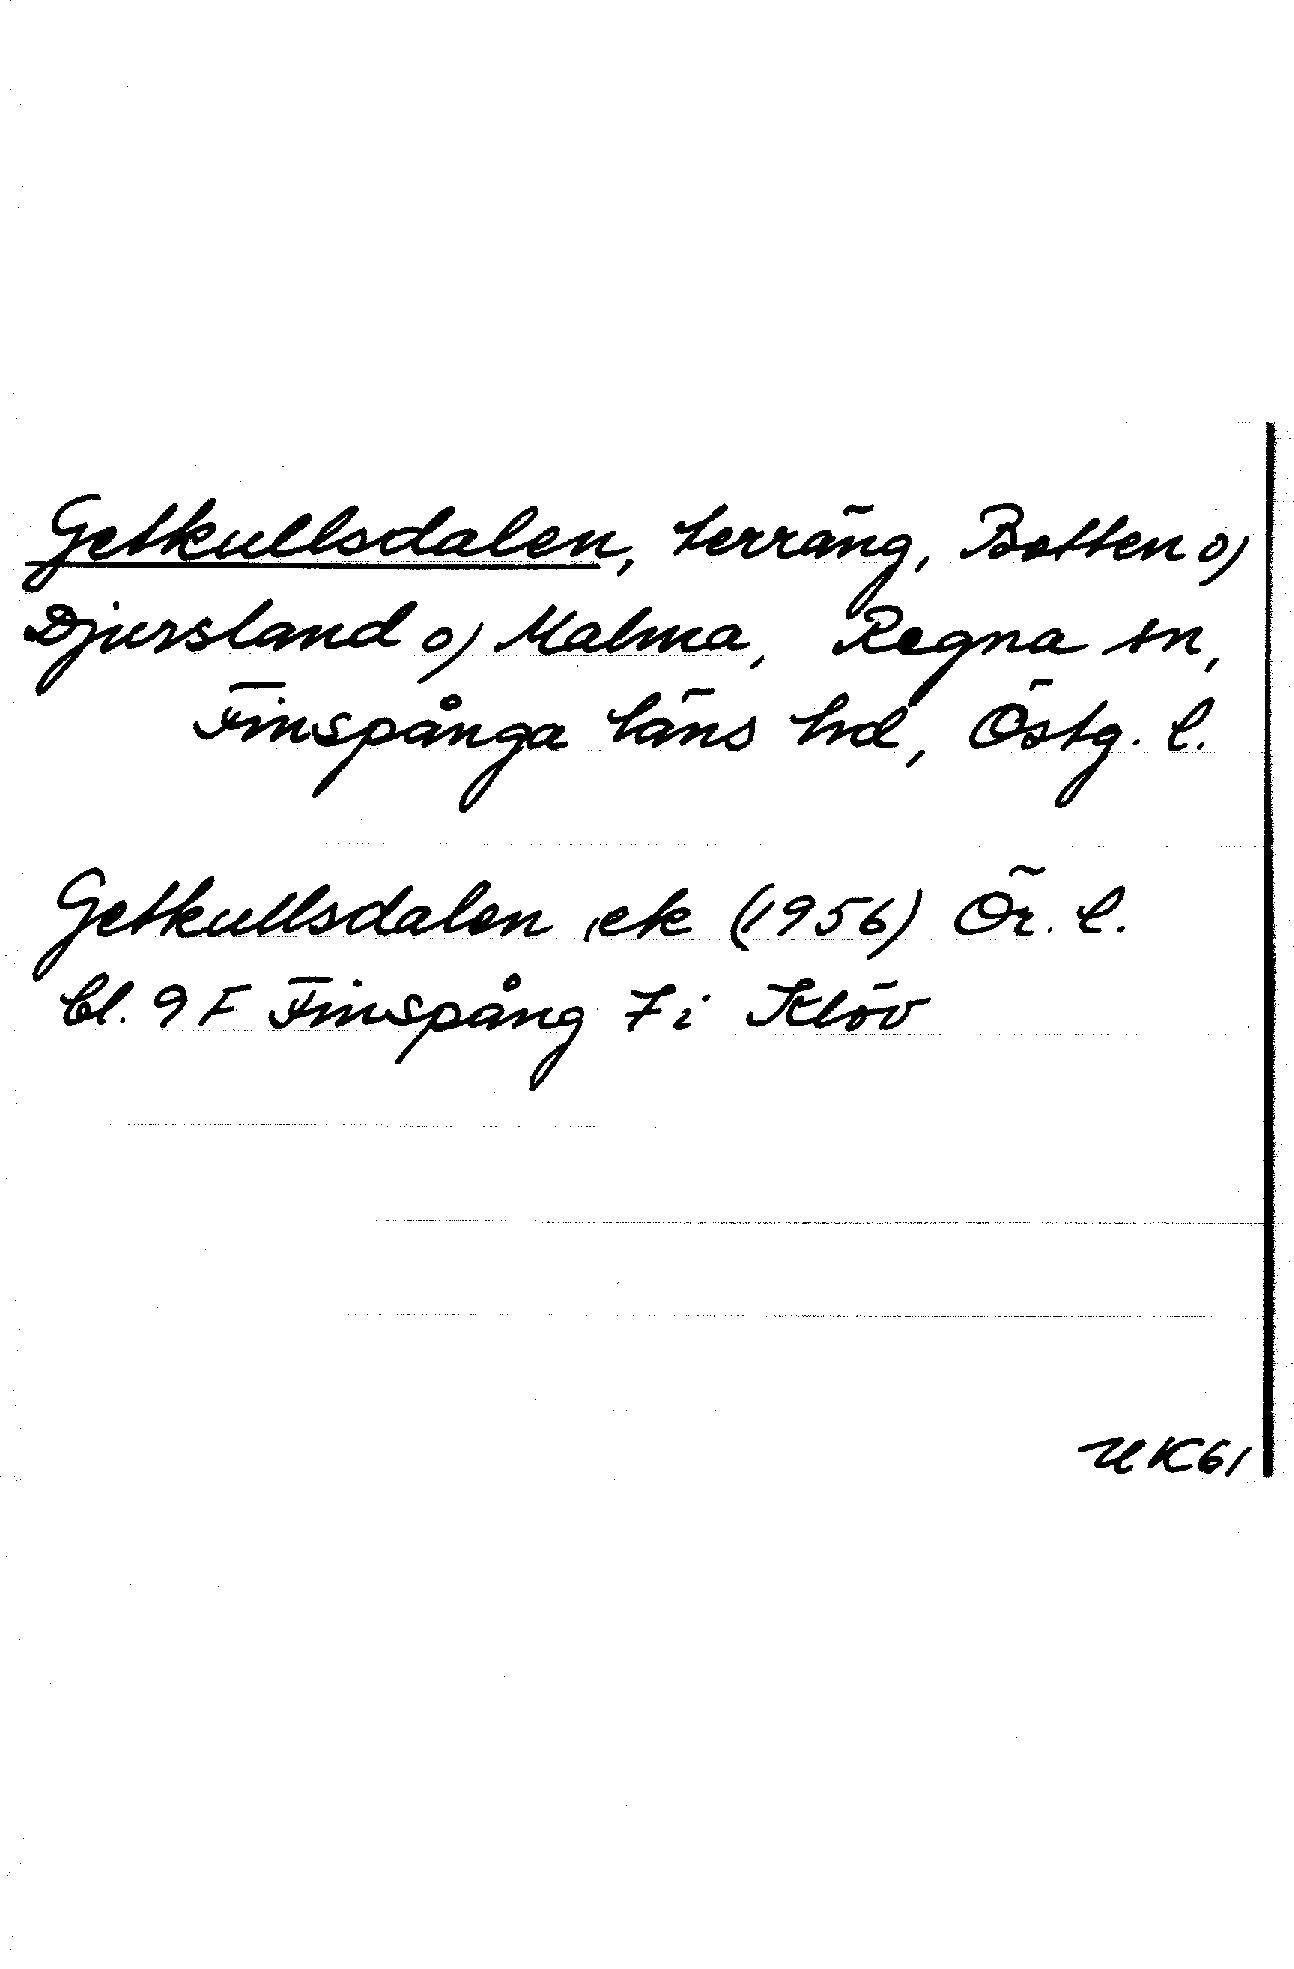 Getkullsdalen, terräng, Botten o)
Djursland o) Malma, Regna sn,
Finspånga läns hd, Östg. l.
Getkullsdalen, ek (1956) Ör. l.
bl. 9 F Finspång 7 i Klöv
UK61